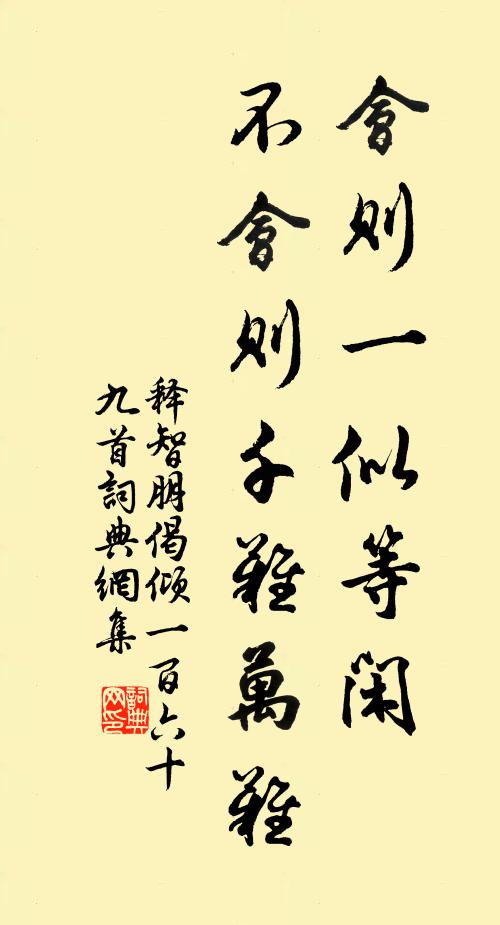 會則一似等閑
不會則千難萬難
释智朋偈倾一百六十
九首詞典網集
詞典网印